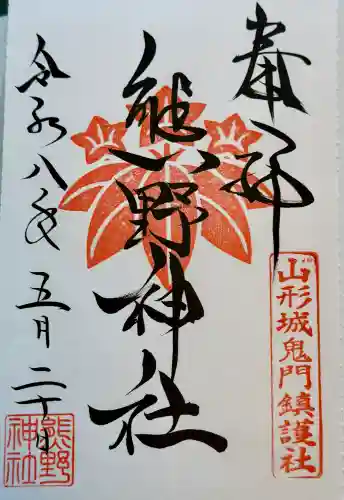 奉拝
山形城鬼門鎮護社
熊野神社
令和八年 五月二十日
熊野
神社